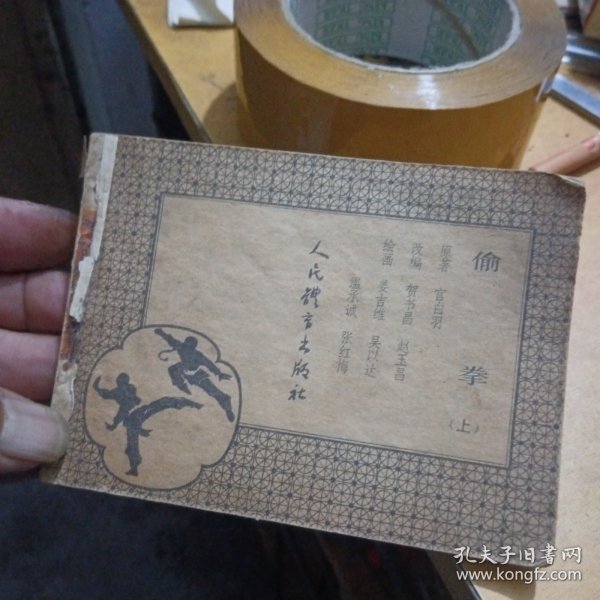 偷拳（上）
原著 宫白羽
改编 贺书昌 赵玉昌
绘画 姜吉维 吴以达
温承诚 张红梅
人民體育出版社
孔夫子旧书网
www.kongfz.com